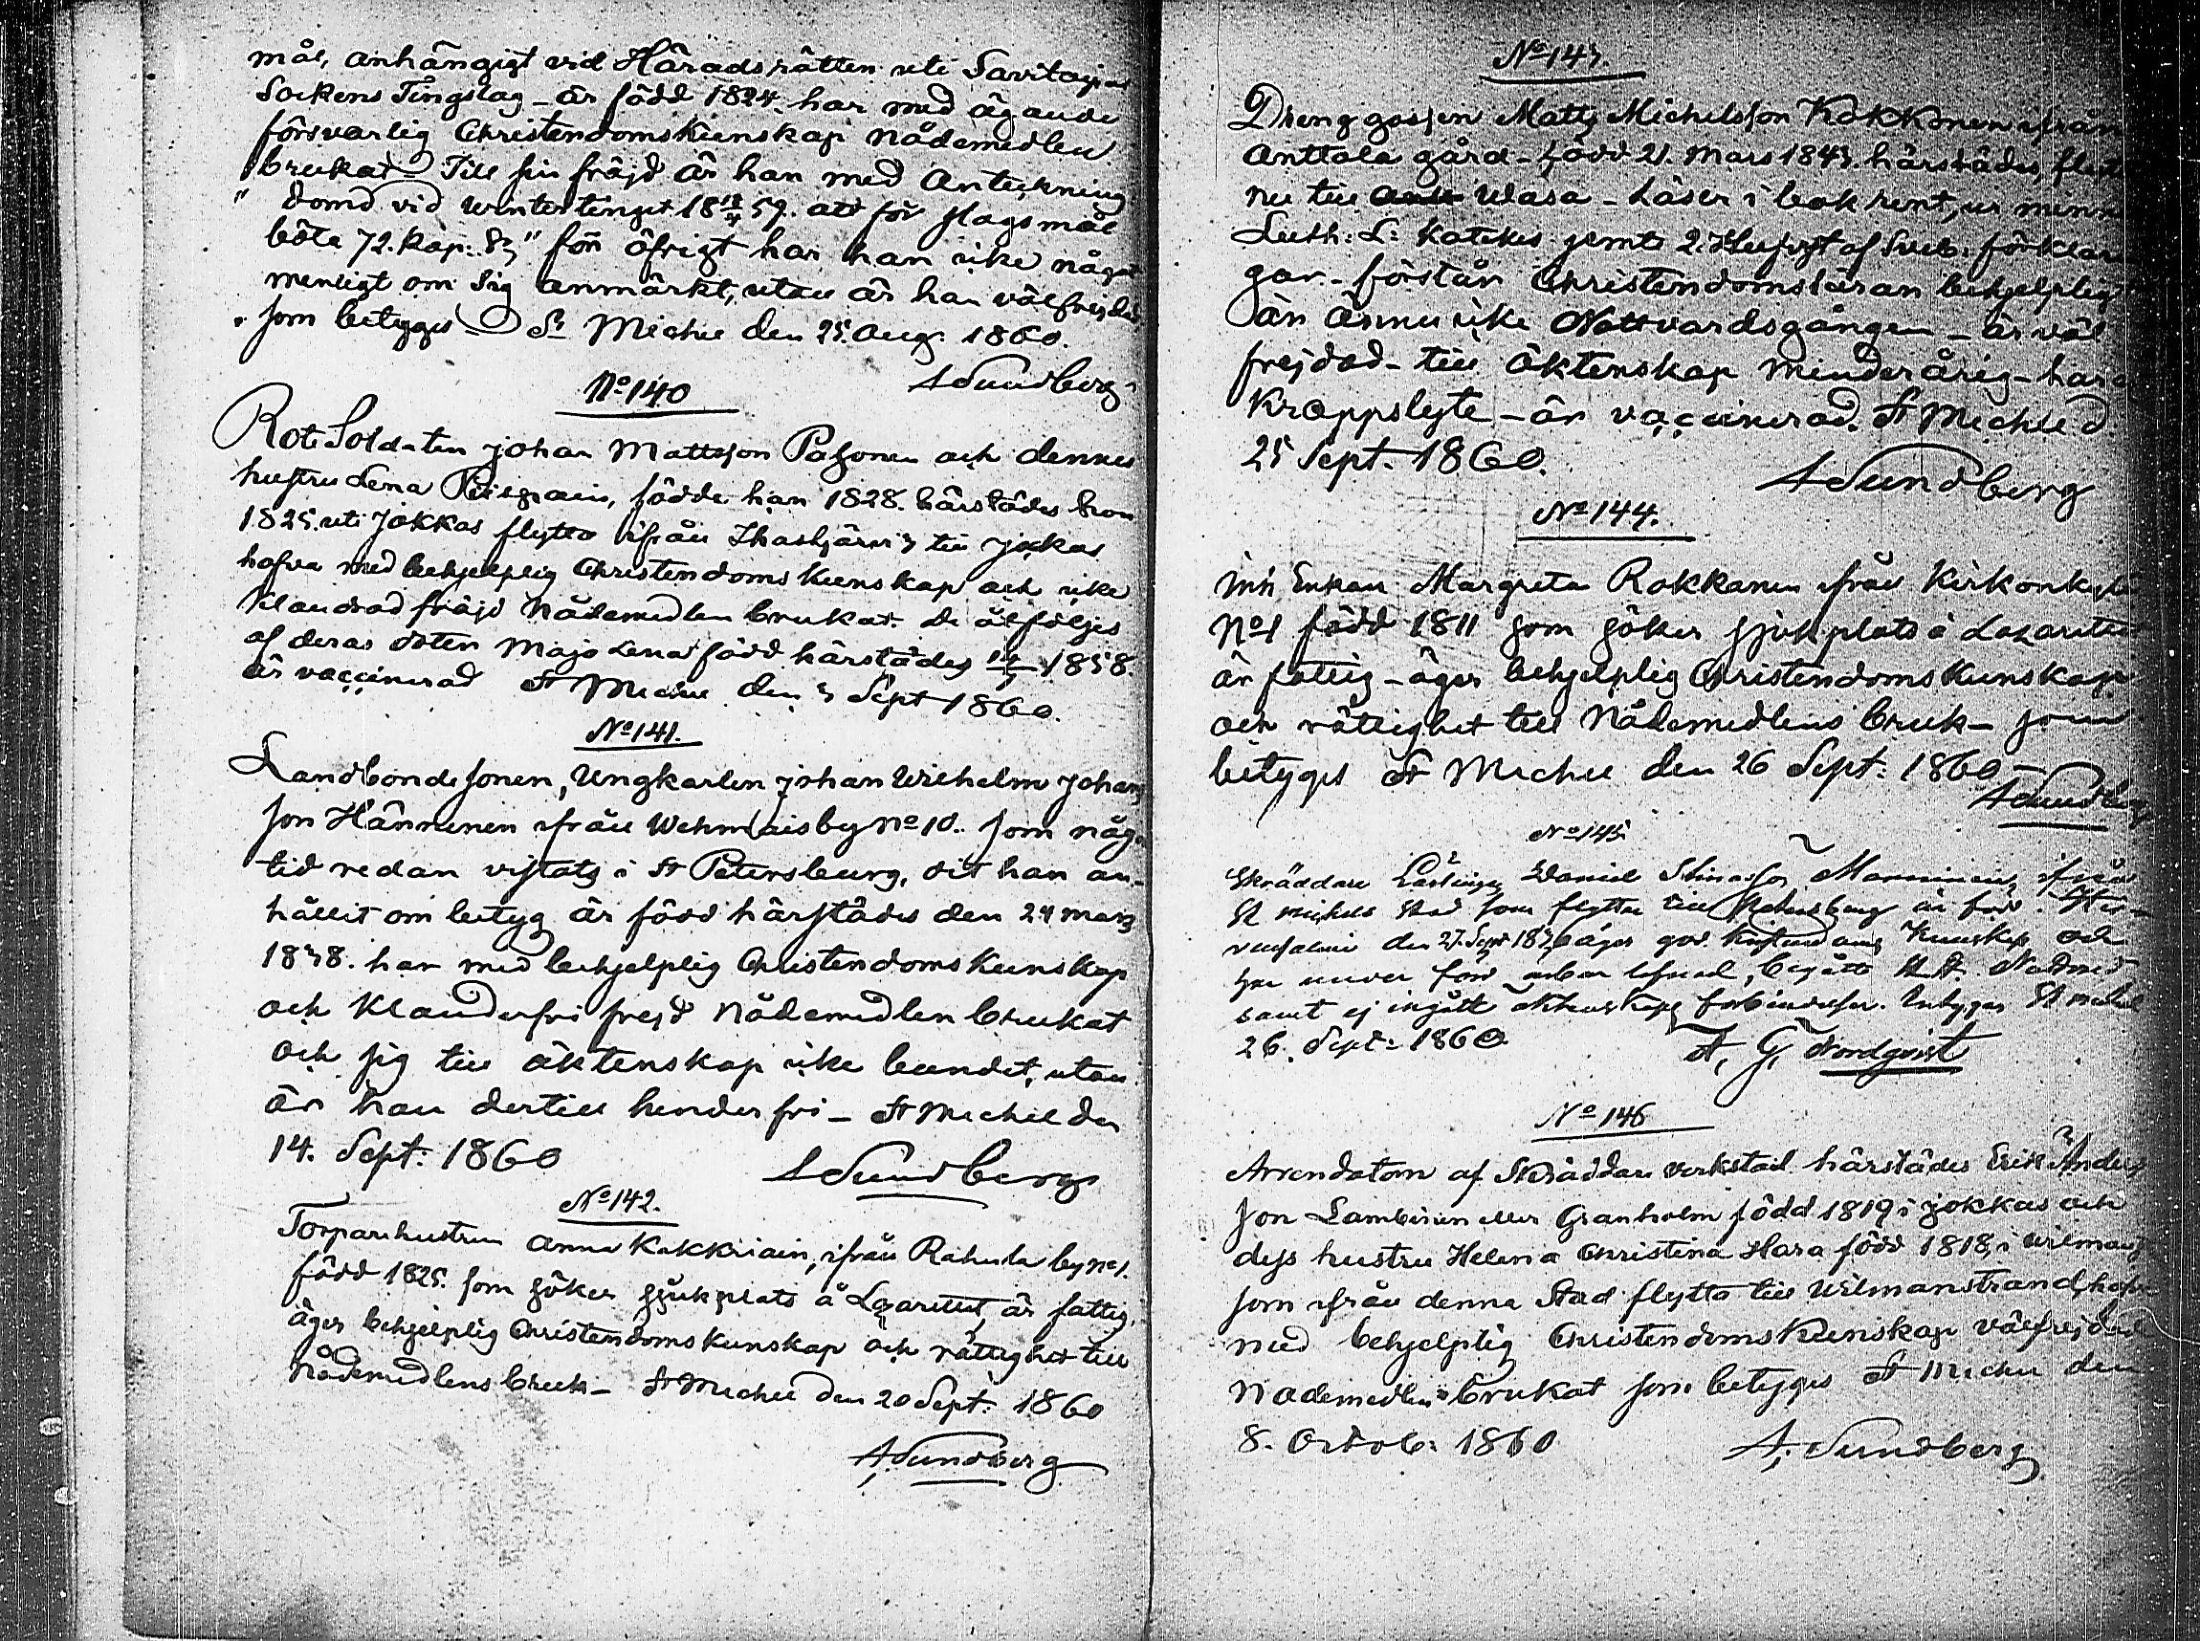 mål, anhängigt vid Häradsrätten uti Savitaipal
Sockens Tingslag – är född 1824. har med ägande
försvarlig Christendomskunskap nådemedlen
brukat Till sin fräjd är han med anteckning
" domd vid wintertinget 18 59. att för slagsmål
böta 72. kop: Sr" för öfrigt har han icke något
menligt om sig anmärkt, utan är han välfrejdad
som betyges St Michel den 25. Aug. 1860.
A Sundberg
No 140
Rote Soldaten Johan Mattsson Pasonen och dennes
hustru Lena födde han 1828. härstädes hon
1825. uti Jokkas flytta ifrån Ihastjärvi till Jokkas
hafva med behjelplig Christendoms kunskap och icke
klandrad fräjd Nådemedlen brukat. De åtföljes
af deras doter Maja Lena född härstädes 1858.
är vaccinerad St Michel den 3 Sept 1860.
No 141.
Landbondesonen, Ungkarlen Johan Wilhelm Johans
son Hänninen ifrån Wehmaisby No 10. som någon
tid redan vistats i St Petersburg, dit han an-
hållit om betyg är född härstädes den 24 mars
1838. har med behjelplig Christendomskunskap
och klanderfri frejd Nådemedlen brukat
och sig till äktenskap icke bundit, utan
är han dertill hinderfri – St Michel den
14. Sept: 1860
A Sundberg
No 142.
Torparehustrun Anna Kokkriain, ifrån Rahula by No 1.
född 1825. som söker sjukplats å Lazarettet, är fattig,
äger behjelplig Christendomskunskap och rättighet till
Nådemedlens bruk – St Michel den 20 Sept: 1860
A. Sundberg
No 143.
Dreng gossen Matts Michelsson Kokkonen ifrån
Anttola gård – född 21. Mars 1843. härstädes, flytt
nu till Wasa – Läser i bok rent, ur minne
Luth: L: Katekes jemte 2. Hufst af Sveb: förklarin
gar – förstår Christendomsläran behjelpligt
än ännu icke Nattvardsgången – är väl
frejdad – till äktenskap minderårig – har
Kroppslyte – är vaccinerad. St Michel d.
25 Sept. 1860.
A Sundberg
No 144.
Enkan Margreta Rokkanen ifrån Kirkonkylä
No 1 född 1811 som söker sjukplats å Lazarettet
är fattig – äger behjelplig Christendomskunskap
och rättighet till Nådemedlens bruk – som
betyges St Michel den 26 Sept: 1860 –
A Sundberg
No 145
Skräddare Lärlingen Daniel Manninen ifrån
St Michels Stad som flyttar till Petersburg är född i
den 27. Sept 18 äger god Christendoms kunskap och
har under förd lefnad, begått H. H. Nattvard
samt ej ingått äktenskaps förbindelser. Intygar St Michel
26. Sept: 1860
A. G. Nordqvist
No 146
Arrendatorn af Skräddare verkstad härstädes Erik Anders
son Lambinen eller Granholm född 1819 i Jokkas och
dess hustru Helena Christina Hara född 1818, i Wilmans
som ifrån denna Stad flytta till Wilmanstrand, hafva
med behjelplig Christendomskunskap välfrejdade
Nademedlen brukat som betyges St Michel den
8. Octob: 1860
A. Sundberg